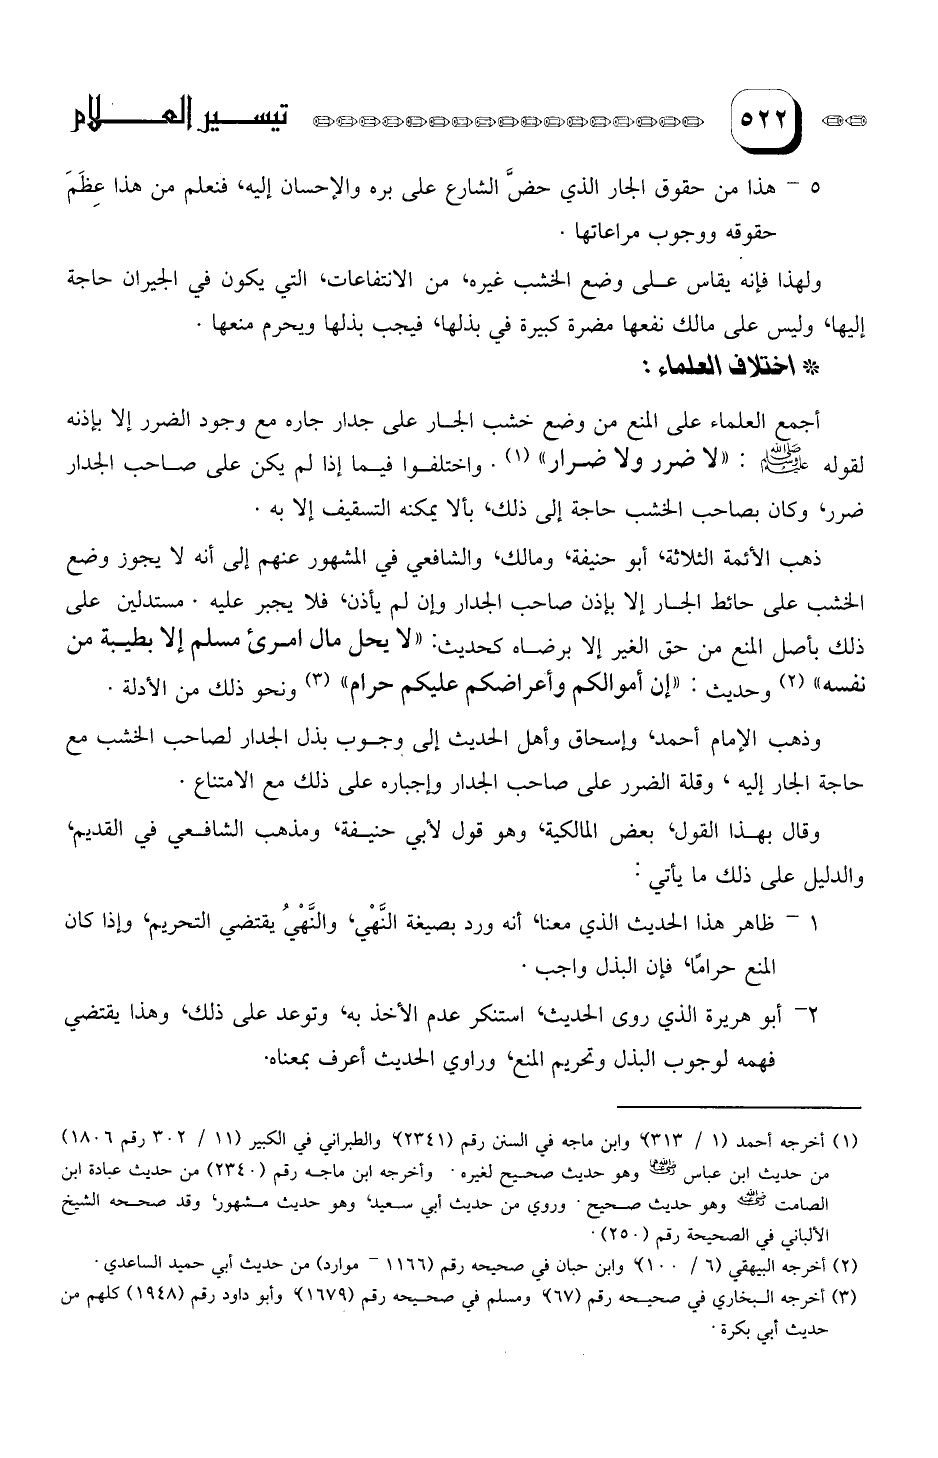 تيسير العلام
٥٢٢
٥ – هذا من حقوق الجار الذي حضَّ الشارع على بره والإحسان إليه، فنعلم من هذا عِظَمَ
حقوقه ووجوب مراعاتها .
ولهذا فإنه يقاس على وضع الخشب غيره، من الانتفاعات، التي يكون في الجيران حاجة
إليها، وليس على مالك نفعها مضرة كبيرة في بذلها، فيجب بذلها ويحرم منعها .
* اختلاف العلماء :
أجمع العلماء على المنع من وضع خشب الجار على جدار جاره مع وجود الضرر إلا بإذنه
لقوله ﷺ : «لا ضرر ولا ضرار» (١) . واختلفوا فيما إذا لم يكن على صاحب الجدار
ضرر، وكان بصاحب الخشب حاجة إلى ذلك، بألا يمكنه التسقيف إلا به .
ذهب الأئمة الثلاثة، أبو حنيفة، ومالك، والشافعي في المشهور عنهم إلى أنه لا يجوز وضع
الخشب على حائط الجار إلا بإذن صاحب الجدار وإن لم يأذن، فلا يجبر عليه . مستدلين على
ذلك بأصل المنع من حق الغير إلا برضاه كحديث: «لا يحل مال امرئ مسلم إلا بطيبة من
نفسه» (٢) وحديث : «إن أموالكم وأعراضكم عليكم حرام» (٣) ونحو ذلك من الأدلة .
وذهب الإمام أحمد، وإسحاق وأهل الحديث إلى وجوب بذل الجدار لصاحب الخشب مع
حاجة الجار إليه ، وقلة الضرر على صاحب الجدار وإجباره على ذلك مع الامتناع .
وقال بهذا القول، بعض المالكية، وهو قول لأبي حنيفة، ومذهب الشافعي في القديم،
والدليل على ذلك ما يأتي :
١ – ظاهر هذا الحديث الذي معنا، أنه ورد بصيغة النَّهْي، والنَّهْيُ يقتضي التحريم، وإذا كان
المنع حرامًا، فإن البذل واجب .
٢– أبو هريرة الذي روى الحديث، استنكر عدم الأخذ به، وتوعد على ذلك، وهذا يقتضي
فهمه لوجوب البذل وتحريم المنع، وراوي الحديث أعرف بمعناه.
(١) أخرجه أحمد (١ / ٣١٣)، وابن ماجه في السنن رقم (٢٣٤١)، والطبراني في الكبير (١١ / ٣٠٢ رقم ١٨٠٦)
من حديث ابن عباس رضي الله عنه وهو حديث صحيح لغيره . وأخرجه ابن ماجه رقم (٢٣٤٠) من حديث عبادة ابن
الصامت رضي الله عنه وهو حديث صحيح . وروي من حديث أبي سعيد، وهو حديث مشهور، وقد صححه الشيخ
الألباني في الصحيحة رقم (٢٥٠) .
(٢) أخرجه البيهقي (٦ / ١٠٠)، وابن حبان في صحيحه رقم (١١٦٦ – موارد) من حديث أبي حميد الساعدي .
(٣) أخرجه البخاري في صحيحه رقم (٦٧)، ومسلم في صحيحه رقم (١٦٧٩)، وأبو داود رقم (١٩٤٨) كلهم من
حديث أبي بكرة .